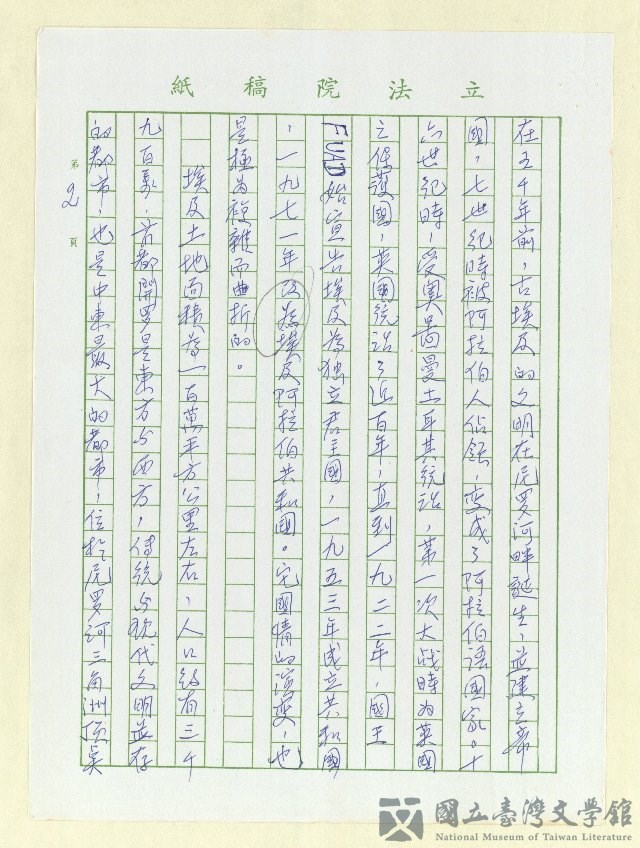 立法院稿紙
在五千年前，古埃及的文明在尼罗河畔誕生，並建立帝
國，七世紀時被阿拉伯人佔領，变成了阿拉伯語國家。十
六世紀時，受奧啚曼土耳其統治，第一次大战時为英國
之保護國，英國統治了近百年，直到一九二二年，國王
FUAD始宣告埃及為独立君主國，一九五三年成立共和國
，一九七一年改為埃及阿拉伯共和國。它國情的演变，也
是極为複雜而曲折的。
埃及土地面積為一百萬平方公里左右，人口約有三千
九百萬，首都開罗是東方与西方，傳統与現代文明並存
的都市，也是中東最大的都市，位於尼罗河三角洲頂点
第2頁
國立臺灣文學館
National Museum of Taiwan Literature